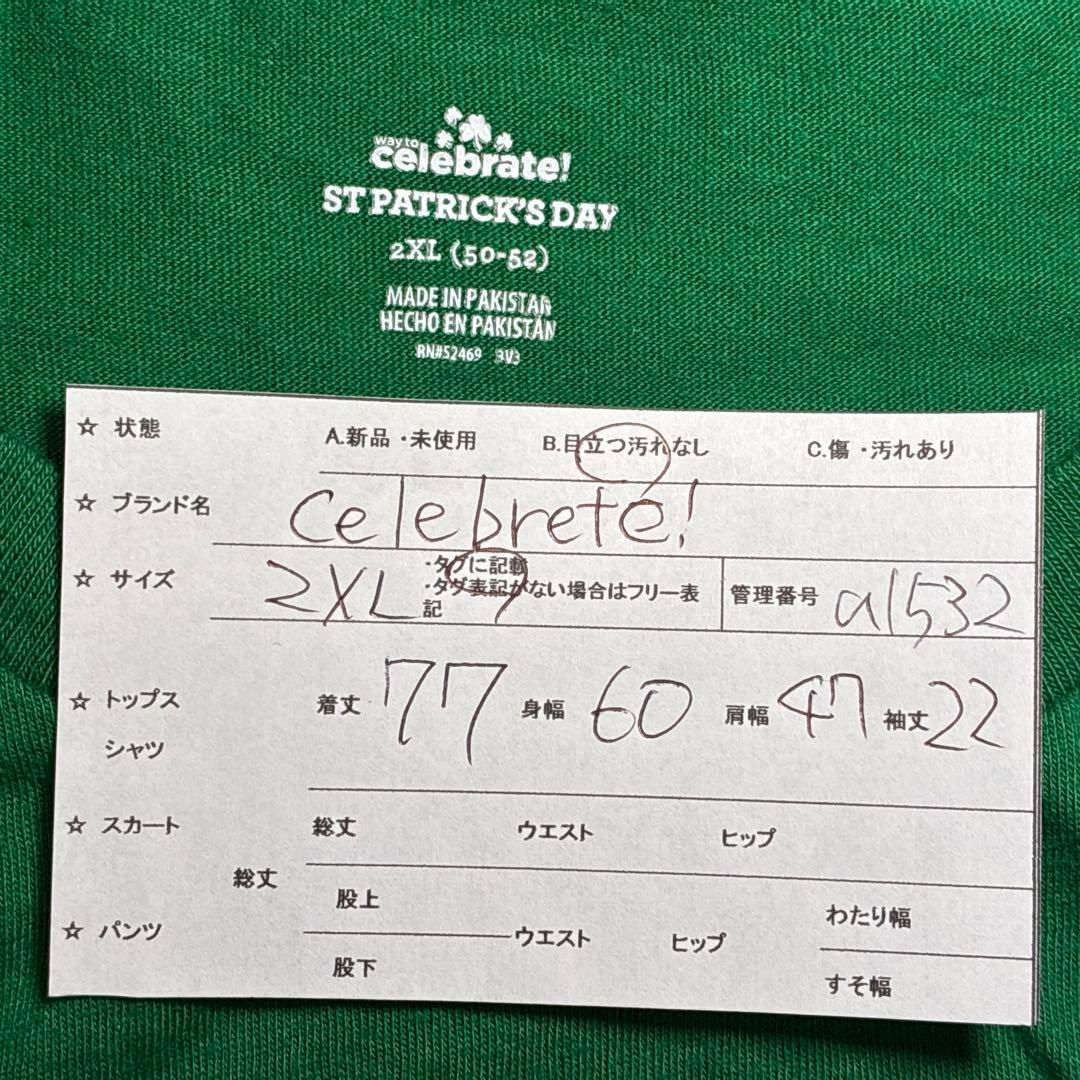 way to
celebrate!
ST PATRICK'S DAY
2XL (50-52)
MADE IN PAKISTAN
HECHO EN PAKISTÁN
RN#52469 3V3
☆ 状態 A.新品・未使用 B.目立つ汚れなし C.傷・汚れあり
☆ ブランド名 celebrete!
☆ サイズ 2XL ・タグに記載
・タグ表記がない場合はフリー表
記
管理番号 a1532
☆ トップス 着丈 77 身幅 60 肩幅 47 袖丈 22
シャツ
☆ スカート 総丈 ウエスト ヒップ
総丈
股上
わたり幅
☆ パンツ ウエスト ヒップ
股下
すそ幅